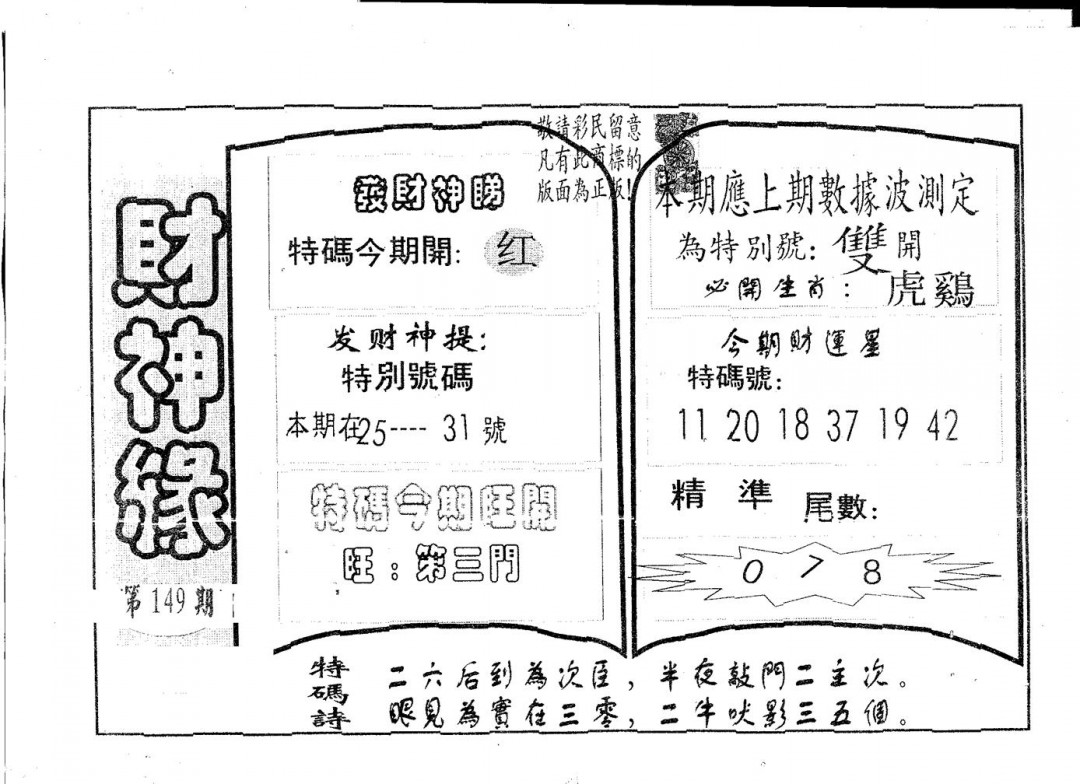 財神緣
第149期
敬請彩民留意
凡有此商標的
版面為正版!
發財神睇
特碼今期開: 红
发财神提:
特別號碼
本期在25----31號
特碼今期旺開
旺:第三門
本期應上期數據波測定
為特別號:雙開
必開生肖:虎鷄
今期財運星
特碼號:
11 20 18 37 19 42
精準 尾數:
0 7 8
特碼詩
二六后到為次臣,半夜敲門二主次。
眼見為實在三零,二牛吠影三五個。